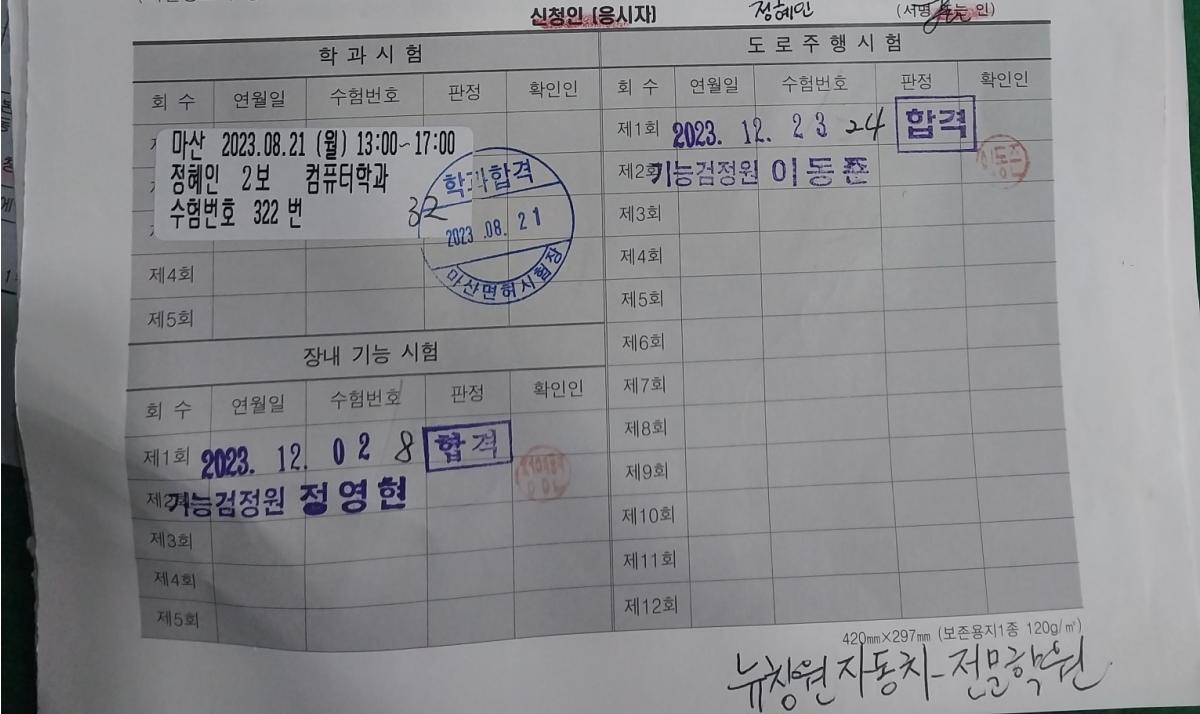 신청인 (응시자) 정혜인 (서명 또는 인)
학 과 시 험
회 수 연월일 수험번호 판정 확인인
마산 2023.08.21 (월) 13:00~17:00
정혜인 2보 컴퓨터학과
수험번호 322 번
32
학과합격
2023 .08. 21
마산면허시험장
제4회
제5회
장내 기능 시험
회 수 연월일 수험번호 판정 확인인
제1회 2023. 12. 02 8 합격
제2회 기능검정원 정영현
제3회
제4회
제5회
도 로 주 행 시 험
회 수 연월일 수험번호 판정 확인인
제1회 2023. 12. 23 24 합격
제2회 기능검정원 이동준
제3회
제4회
제5회
제6회
제7회
제8회
제9회
제10회
제11회
제12회
420㎜×297㎜ (보존용지1종 120g/㎡)
뉴창원자동차-전문학원